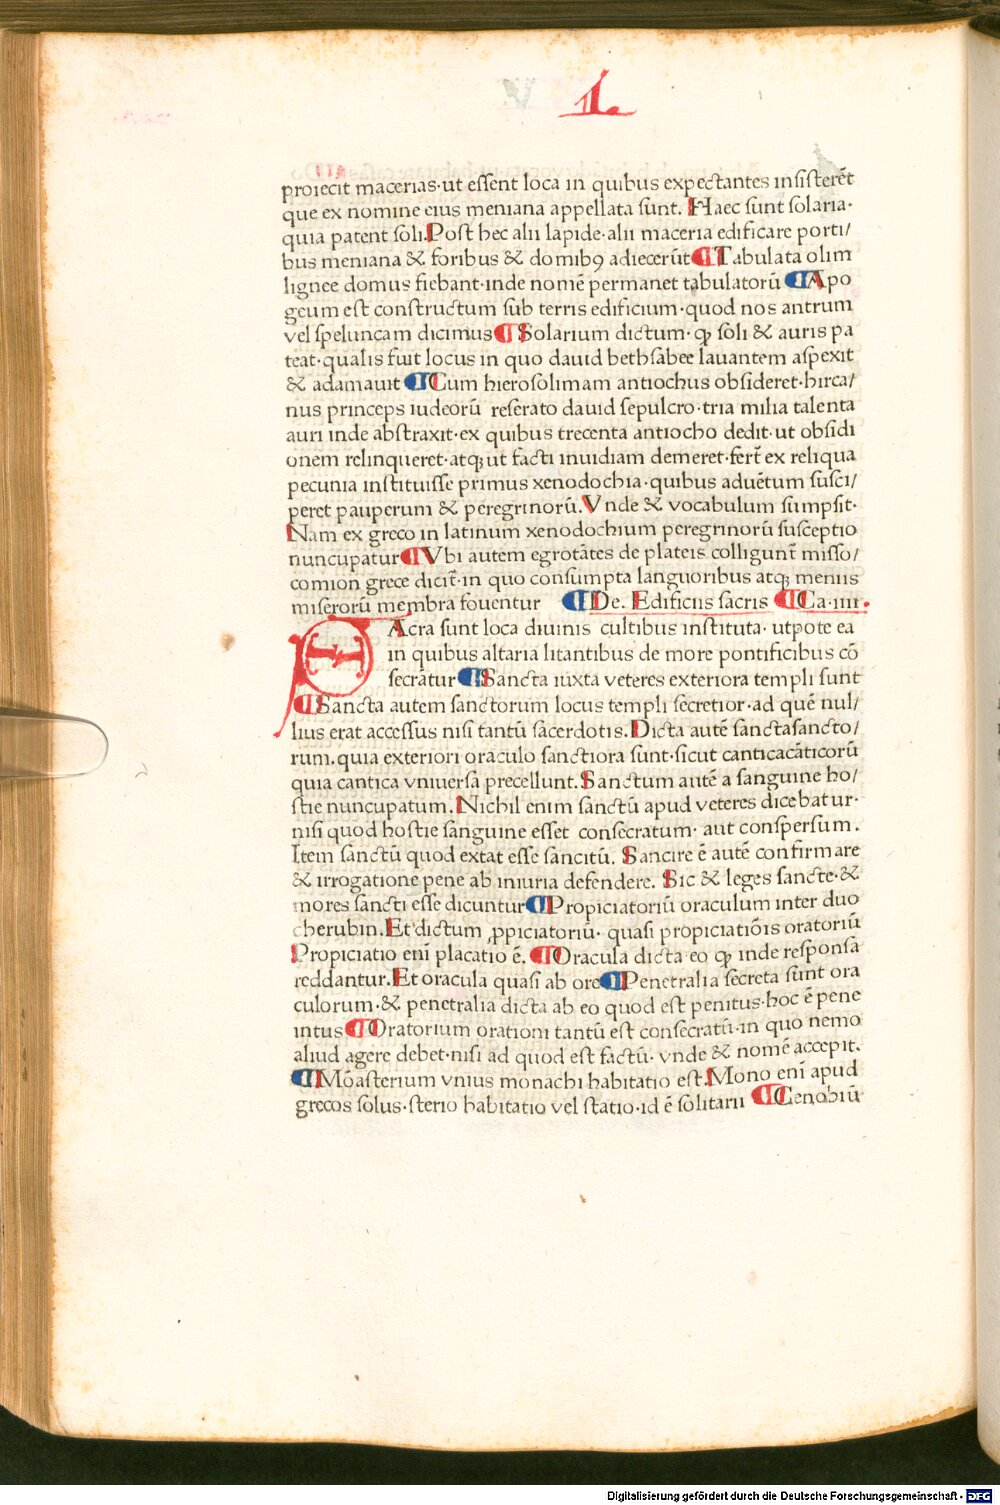 L.
proiecit macerias·ut essent loca in quibus expectantes insisterēt
que ex nomine eius meniana appellata sunt. Haec sunt solaria·
quia patent soli. Post hec alii lapide·alii maceria edificare porti/
bus meniana & foribus & domibꝰ adiecerūt ¶ Tabulata olim
lignee domus fiebant·inde nomē permanet tabulatorū ¶ Apo
geum est constructum sub terris edificium·quod nos antrum
vel speluncam dicimus ¶ Solarium dictum· ꝙ soli & auris pa
teat·qualis fuit locus in quo dauid bethsabee lauantem aspexit
& adamauit ¶ Cum hierosolimam antiochus obsideret·hirca/
nus princeps iudeorū reserato dauid sepulcro·tria milia talenta
auri inde abstraxit·ex quibus trecenta antiocho dedit·ut obsidi
onem relinqueret·atqꝫ ut facti inuidiam demeret·fert̄ ex reliqua
pecunia instituisse primus xenodochia·quibus aduētum susci/
peret pauperum & peregrinorū. Vnde & vocabulum sumpsit·
Nam ex greco in latinum xenodochium peregrinorū susceptio
nuncupatur ¶ Vbi autem egrotātes de plateis colligunt̄ misso/
comion grece dicit̄·in quo consumpta languoribus atqꝫ meniis
miserorū membra fouentur ¶ De. Edificiis sacris ¶ Ca·iiii.
SAcra sunt loca diuinis cultibus instituta· utpote ea
in quibus altaria litantibus de more pontificibus cō
secrātur ¶ Sancta iuxta veteres exteriora templi sunt
¶ Sancta autem sanctorum locus templi secretior·ad quē nul/
lius erat accessus nisi tantū sacerdotis. Dicta autē sanctasancto/
rum. quia exteriori oraculo sanctiora sunt·sicut canticacāticorū
quia cantica vniuersa precellunt. Sanctum autē a sanguine ho/
stie nuncupatum. Nichil enim sanctū apud veteres dicebatur·
nisi quod hostie sanguine esset consecratum· aut conspersum.
Item sanctū quod extat esse sancitū. Sancire ē autē confirmare
& irrogatione pene ab iniuria defendere. Sic & leges sancte·&
mores sancti esse dicuntur ¶ Propiciatoriū oraculum inter duo
cherubin. Et dictum ꝓpiciatoriū· quasi propiciatiōis oratoriū
Propiciatio eni̅ placatio ē. ¶ Oracula dicta eo ꝙ inde responsa
reddantur. Et oracula quasi ab ore ¶ Penetralia secreta sunt ora
culorum·& penetralia dicta ab eo quod est penitus·hoc ē pene
intus ¶ Oratorium orationi tantū est consecratū·in quo nemo
aliud agere debet·nisi ad quod est factū· vnde & nomē accepit.
¶ Mōasterium vnius monachi habitatio est. Mono eni̅ apud
grecos solus·sterio habitatio vel statio·id ē solitarii ¶ Cenobiū
Digitalisierung gefördert durch die Deutsche Forschungsgemeinschaft - DFG